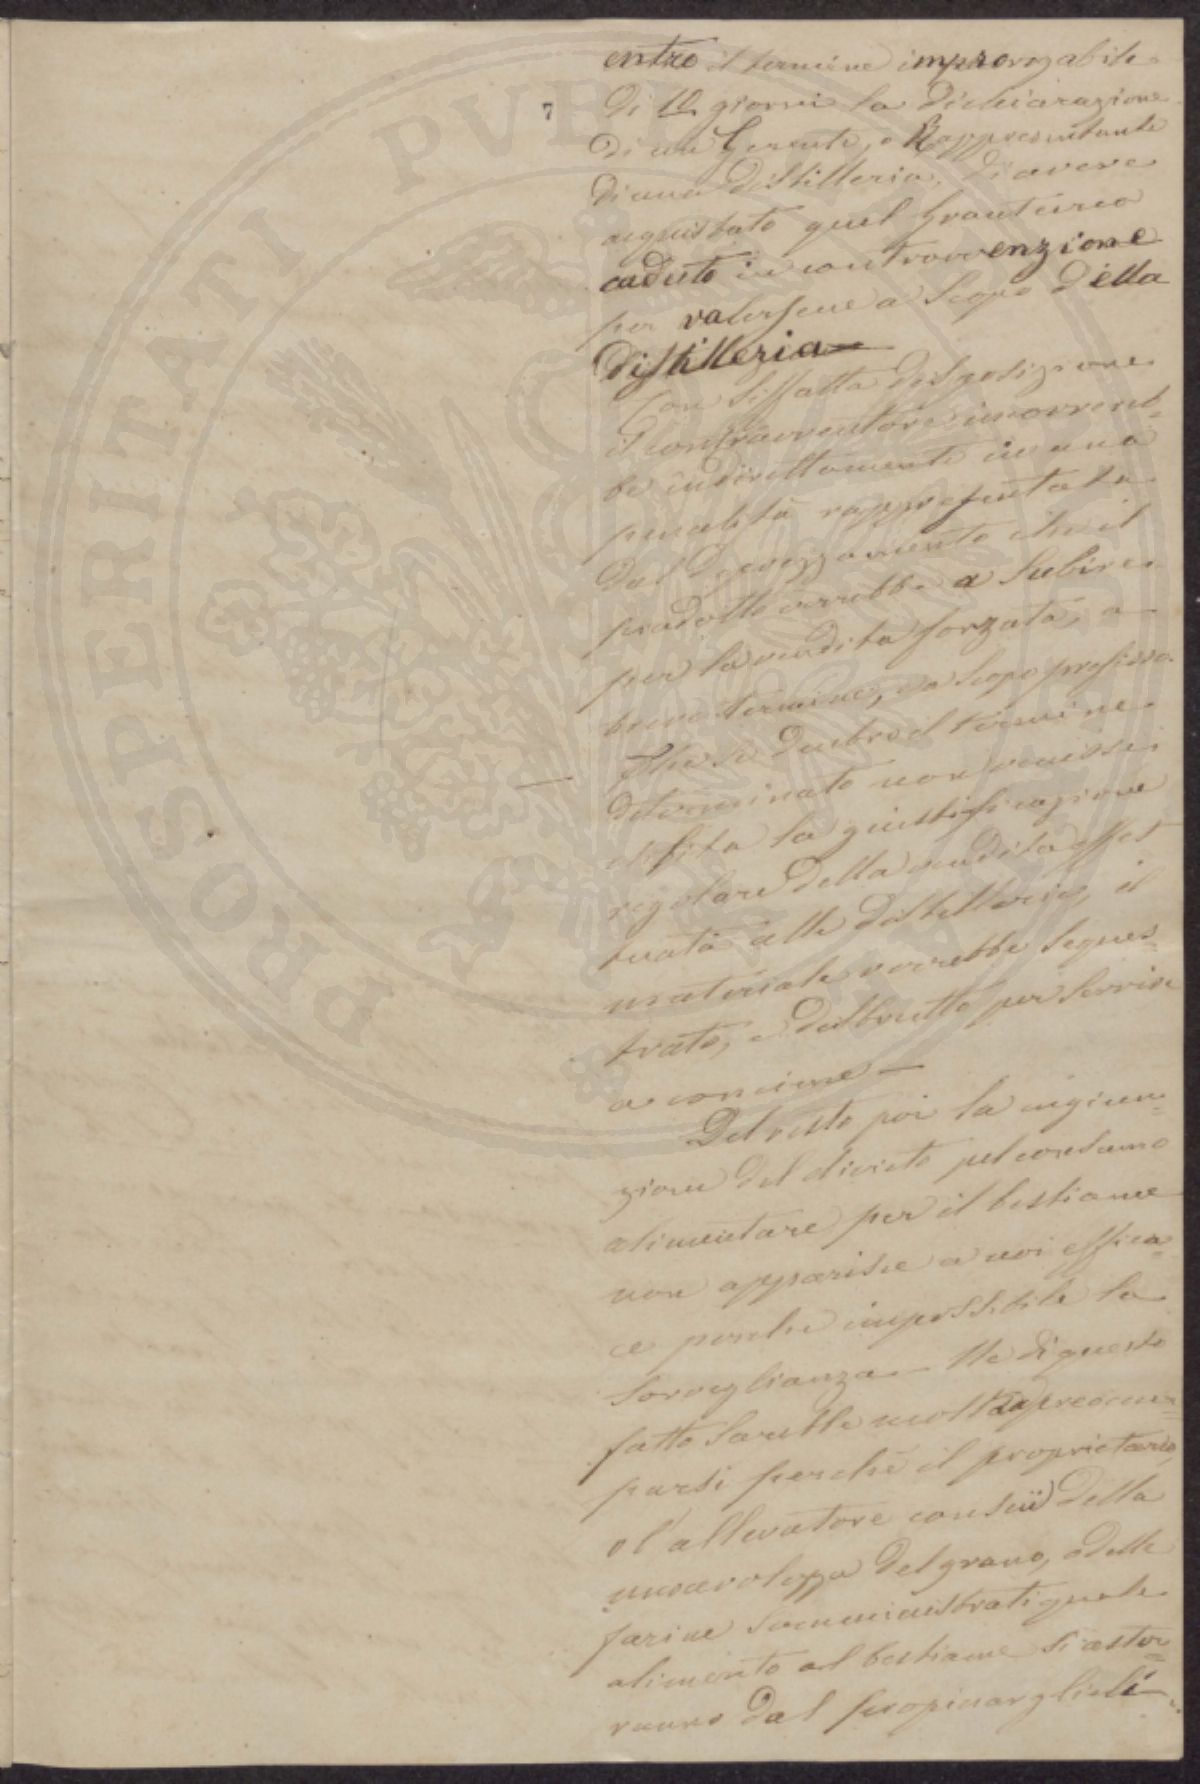 entro il termine improrogabile
7
di 10 giorni la dichiarazione
di un Gerente, o Rappresentante
di una distilleria, di avere
acquistato quel Granturco
caduto in contravvenzione
per valersene a scopo della
distilleria —
Con siffatta disposizione
il contravventore incorrereb=
be indirettamente in una
penalità rappresentata
dal deprezzamento che il
prodotto verrebbe a subire
per la vendita forzata, a
breve termine, e a scopo prefisso.
Che se dentro il termine
determinato non venisse
esibita la giustificazione
regolare della vendita effet
tuata alle distillerie, il
materiale verrebbe seques=
trato, e distrutto per servire
a concime —
Del resto poi la ingiun=
zione del divieto pel consumo
alimentare per il bestiame
non apparisce a noi effica=
ce perchè impossibile la
sorveglianza — Ne di questo
fatto sarebbe molto a preoccu=
parsi perchè il proprietario,
o l'allevatore conscii della
malsania del grano, o delle
farine somministrati quale
alimento al bestiame si aster=
ranno dal propinarglieli —
PROSPERITATI PUBLICAE